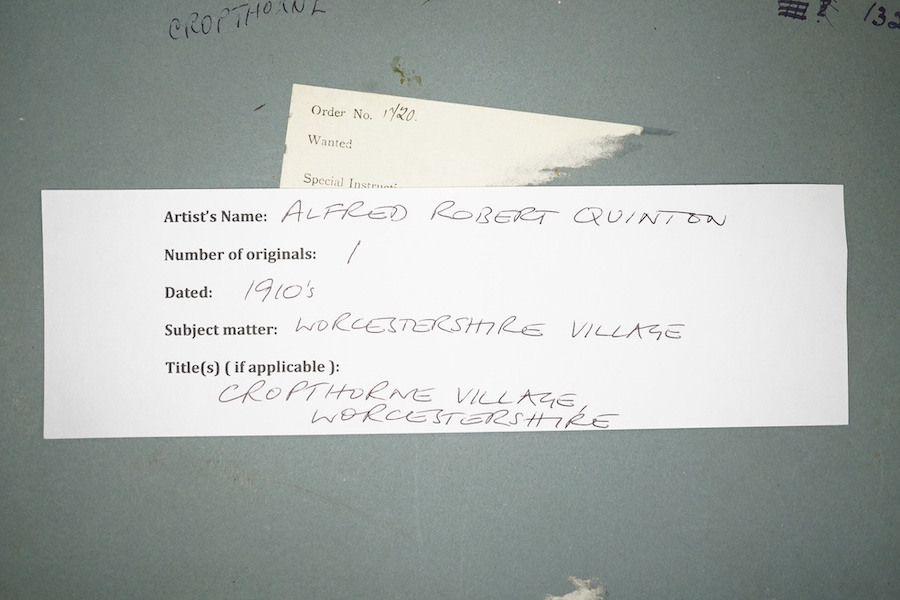 CROPTHORNE
132
Order No. 1/20.
Wanted
Special Instructi
Artist's Name: ALFRED ROBERT QUINTON
Number of originals: 1
Dated: 1910's
Subject matter: WORCESTERSHIRE VILLAGE
Title(s) ( if applicable ):
CROPTHORNE VILLAGE,
WORCESTERSHIRE